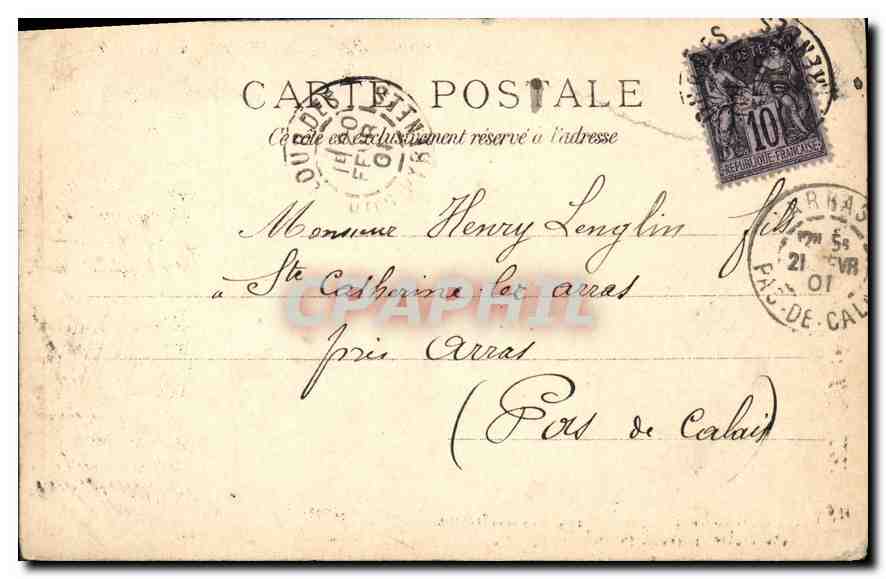 CARTE POSTALE
Ce côté est exclusivement réservé à l'adresse
POSTES
10
REPUBLIQUE FRANÇAISE
LOURDES
10
FEVR
01
ARRAS
21 FEVR
01
PAS-DE-CALAIS
Monsieur Henry Lenglin fils
à Ste Catherine lez arras
près Arras
(Pas de Calais)
CPAPHIL